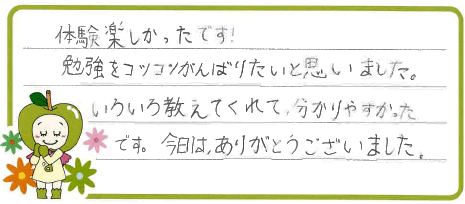 体験楽しかったです!
勉強をコツコツがんばりたいと思いました。
いろいろ教えてくれて、分かりやすかった
です。今日は、ありがとうございました。